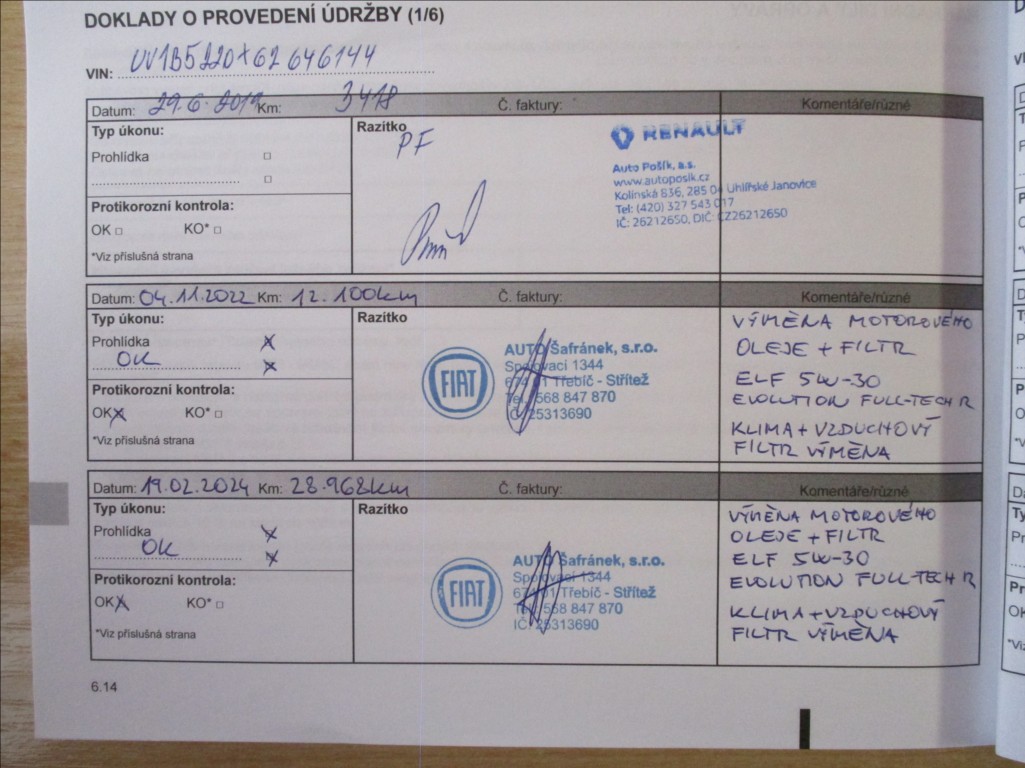 DOKLADY O PROVEDENÍ ÚDRŽBY (1/6)
VIN: UU1B5220X62646144
Datum: 29.6.2019 Km: 3418 Č. faktury: Komentáře/různé
Typ úkonu:
Prohlídka
Protikorozní kontrola:
OK KO*
*Viz příslušná strana
Razítko
PF
RENAULT
Auto Pošík, a.s.
www.autoposik.cz
Kolínská 836, 285 04 Uhlířské Janovice
Tel: (420) 327 543 017
IČ: 26212650, DIČ: CZ26212650
Datum: 04.11.2022 Km: 12.100km Č. faktury: Komentáře/různé
Typ úkonu:
Prohlídka X
OK X
Protikorozní kontrola:
OK X KO*
*Viz příslušná strana
Razítko
FIAT
AUTO Šafránek, s.r.o.
Spojovací 1344
674 01 Třebíč - Střítež
Tel. 568 847 870
IČ: 25313690
VÝMĚNA MOTOROVÉHO
OLEJE + FILTR
ELF 5W-30
EVOLUTION FULL-TECH R
KLIMA + VZDUCHOVÝ
FILTR VÝMĚNA
Datum: 19.02.2024 Km: 28.968km Č. faktury: Komentáře/různé
Typ úkonu:
Prohlídka X
OK X
Protikorozní kontrola:
OK X KO*
*Viz příslušná strana
Razítko
FIAT
AUTO Šafránek, s.r.o.
Spojovací 1344
674 01 Třebíč - Střítež
Tel. 568 847 870
IČ: 25313690
VÝMĚNA MOTOROVÉHO
OLEJE + FILTR
ELF 5W-30
EVOLUTION FULL-TECH R
KLIMA + VZDUCHOVÝ
FILTR VÝMĚNA
6.14